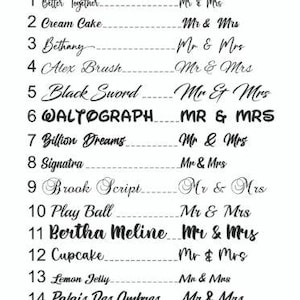 1 Better Together Mr & Mrs
2 Cream Cake Mr & Mrs
3 Bethany Mr & Mrs
4 Alex Brush Mr & Mrs
5 Black Sword Mr & Mrs
6 WALTOGRAPH MR & MRS
7 Billion Dreams Mr & Mrs
8 Signatra Mr & Mrs
9 Brook Script Mr & Mrs
10 Play Ball Mr & Mrs
11 Bertha Meline Mr & Mrs
12 Cupcake Mr & Mrs
13 Lemon Jelly Mr & Mrs
14 Palais Des Ombres Mr & Mrs